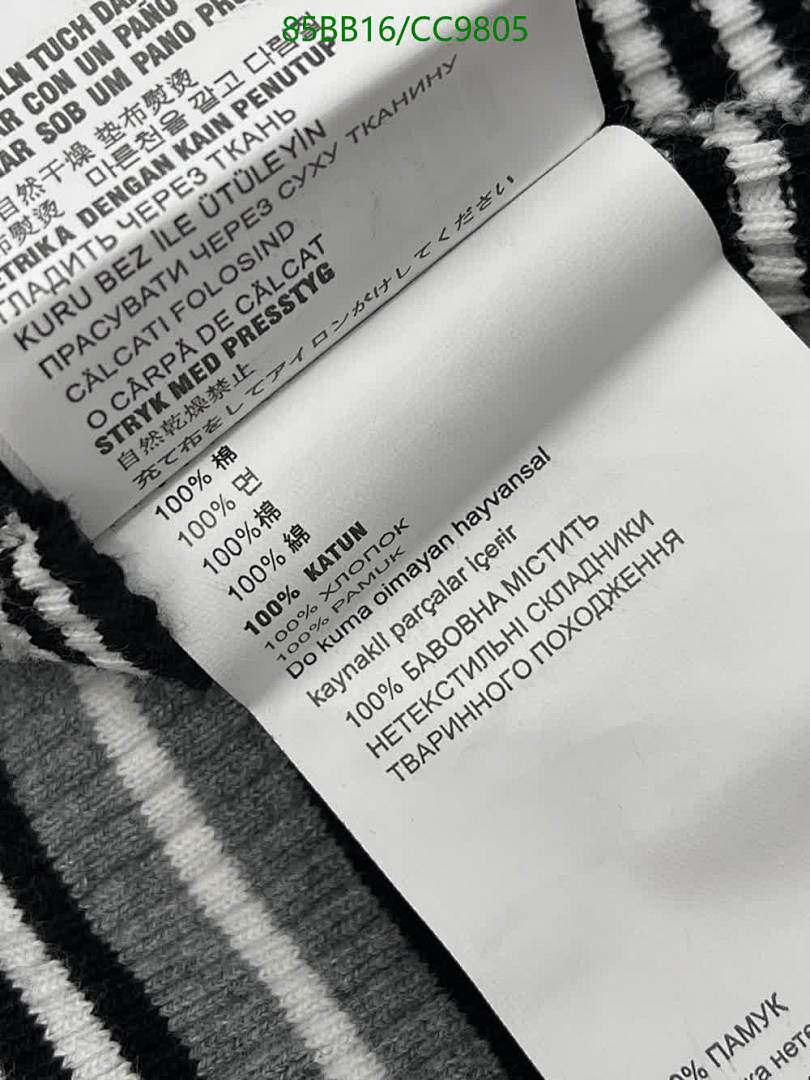 85BB16/CC9805
ELN TUCH DA
AR CON UN PAÑO
AR SOB UM PANO PRO
自然干燥 垫布熨烫
布熨烫 마른천을 깔고 다림질
ETRIKA DENGAN KAIN PENUTUP
ГЛАДИТЬ ЧЕРЕЗ ТКАНЬ
KURU BEZ İLE ÜTÜLEYİN
ПРАСУВАТИ ЧЕРЕЗ СУХУ ТКАНИНУ
CĂLCATI FOLOSIND
O CĂRPĂ DE CĂLCAT
STRYK MED PRESSTYG
自然乾燥禁止
充て布をしてアイロンがけしてください
100% 棉
100% 면
100%棉
100% 綿
100% KATUN
100% ХЛОПОК
100% PAMUK
Do kuma oimayan hayvansal
kaynakIl parçalar içeriг
100% БАВОВНА МІСТИТЬ
НЕТЕКСТИЛЬНІ СКЛАДНИКИ
ТВАРИННОГО ПОХОДЖЕННЯ
0% ПАМУК
ка нете